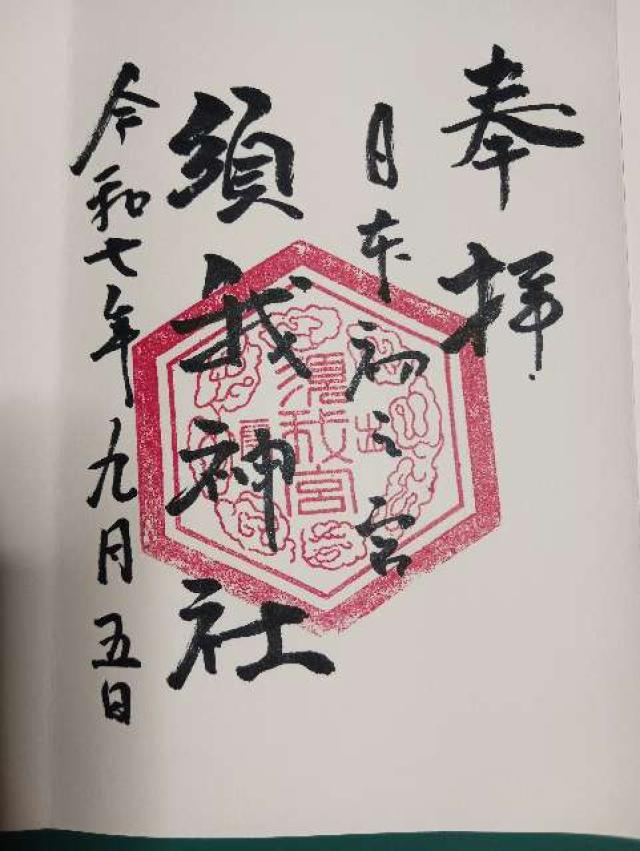 奉拝
日本初之宮
須我神社
令和七年九月五日
出雲
須我宮